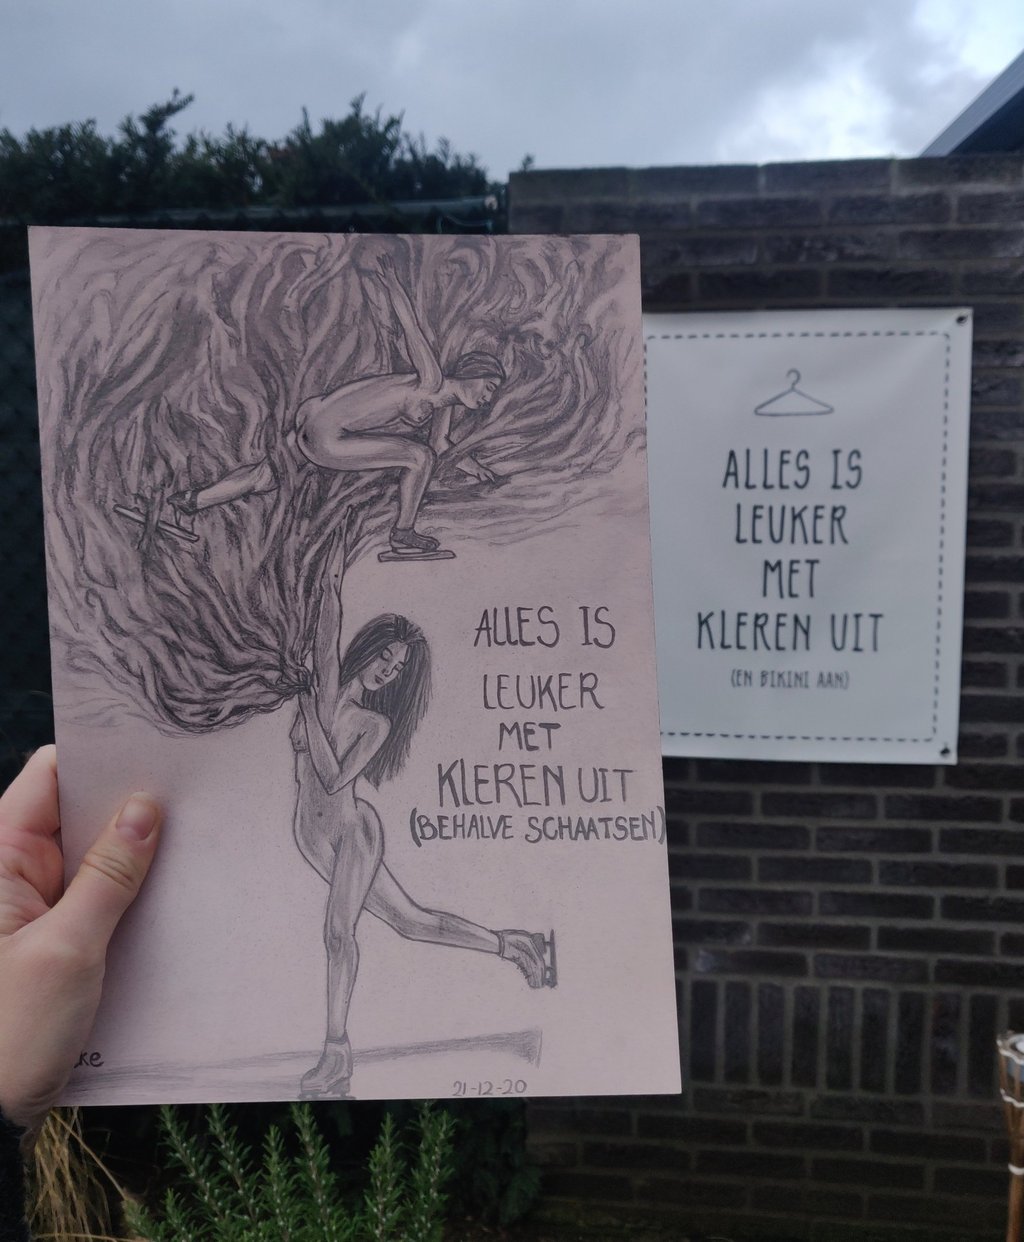 ALLES IS
LEUKER
MET
KLEREN UIT
(BEHALVE SCHAATSEN)
ke
21-12-20
ALLES IS
LEUKER
MET
KLEREN UIT
(EN BIKINI AAN)